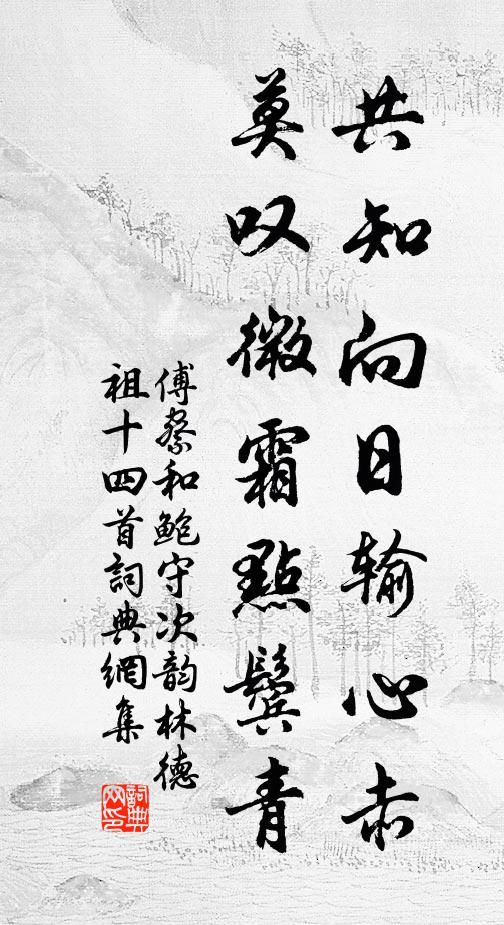 共知向日输心赤
莫叹微霜點鬓青
傅察和鲍守次韵林德
祖十四首詞典網集